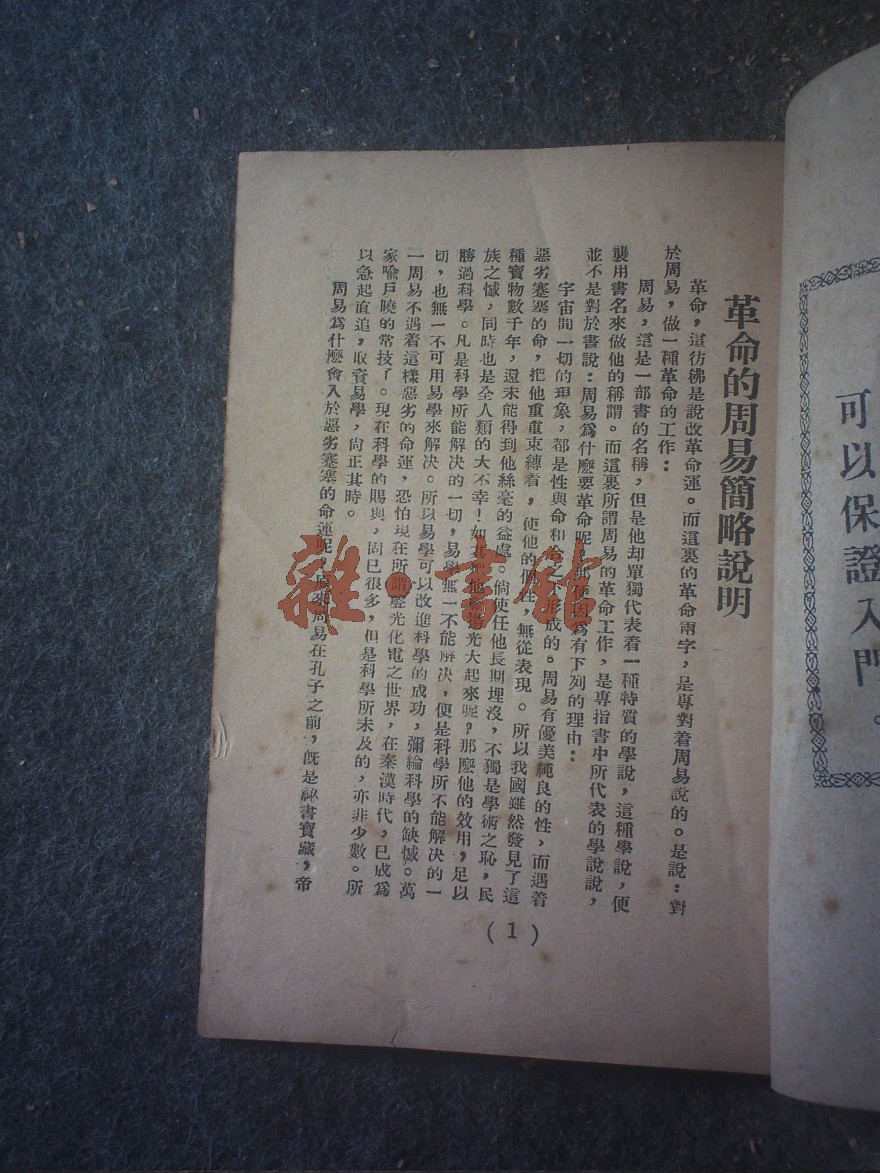 可以保證入門。
革命的周易簡略說明
革命，這彷彿是說改革命運。而這裏的革命兩字，是專對着周易說的。是說：對
於周易，做一種革命的工作：
周易，這是一部書的名稱，但是他却單獨代表着一種特質的學說，這種學說，便
襲用書名來做他的稱謂。而這裏所謂周易的革命工作，是專指書中所代表的學說說，
並不是對於書說：周易爲什麽要革命呢？便因爲有下列的理由：
宇宙間一切的現象，都是性與命和形成的。周易有優美純良的性，而遇着
惡劣蹇塞的命，把他重重束縛着，使他的個性，無從表現。所以我國雖然發見了這
種寶物數千年，還未能得到他絲毫的益處，倘使任他長期埋沒，不獨是學術之恥，民
族之憾，同時也是全人類的大不幸！如其光大起來呢？那麽他的效用，足以
勝過科學。凡是科學所能解決的一切，易學無一不能解決，便是科學所不能解決的一
切，也無一不可用易學來解决。所以易學可以改進科學的成功，彌綸科學的缺憾。萬
一周易不遇着這樣惡劣的命運，恐怕現在所謂聲光化電之世界，在秦漢時代，已成爲
家喩戶曉的常技了。現在科學的賜與，固已很多，但是科學所未及的，亦非少數。所
以急起直追，收資易學，尙正其時。
周易爲什麽會入於惡劣蹇塞的命運呢，原來周易在孔子之前，旣是祕書寶藏，帝
(1)
雜·書館